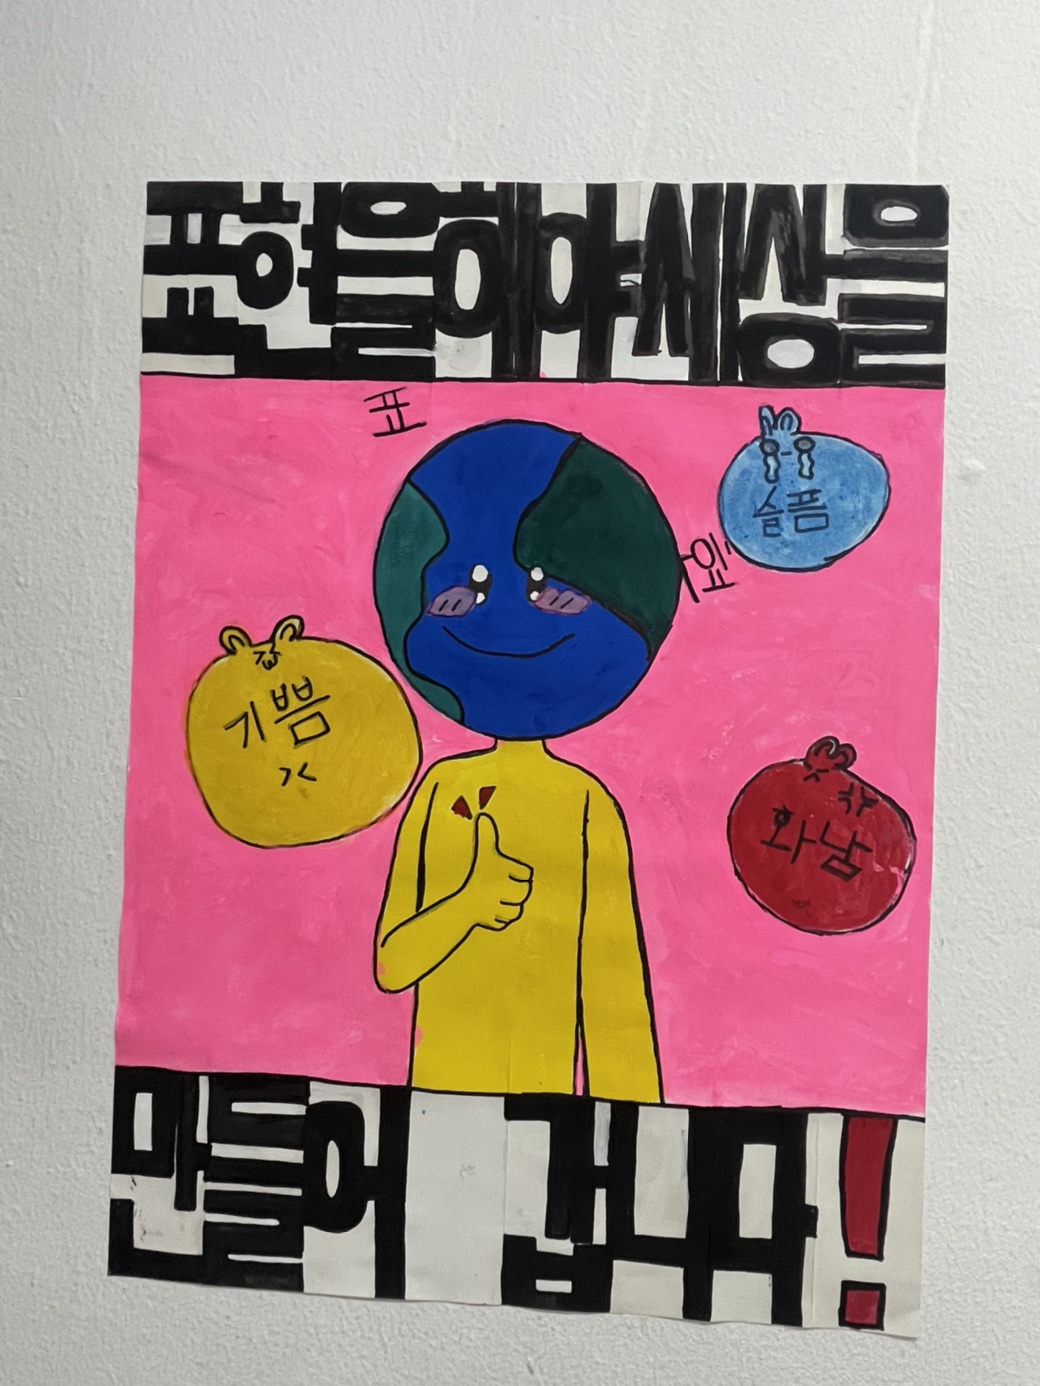 표현을해야세상을
표
슬픔
기쁨
화남
만들어 갑니다!